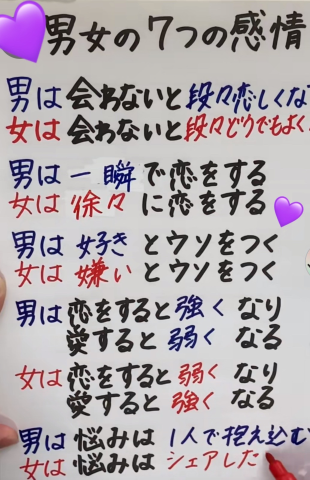 男女の7つの感情
男は会わないと段々恋しくな
女は会わないと段々どうでもよく
男は一瞬で恋をする
女は徐々に恋をする
男は好きとウソをつく
女は嫌いとウソをつく
男は恋をすると強くなり
愛すると弱くなる
女は恋をすると弱くなり
愛すると強くなる
男は悩みは1人で抱え込む
女は悩みはシェアした